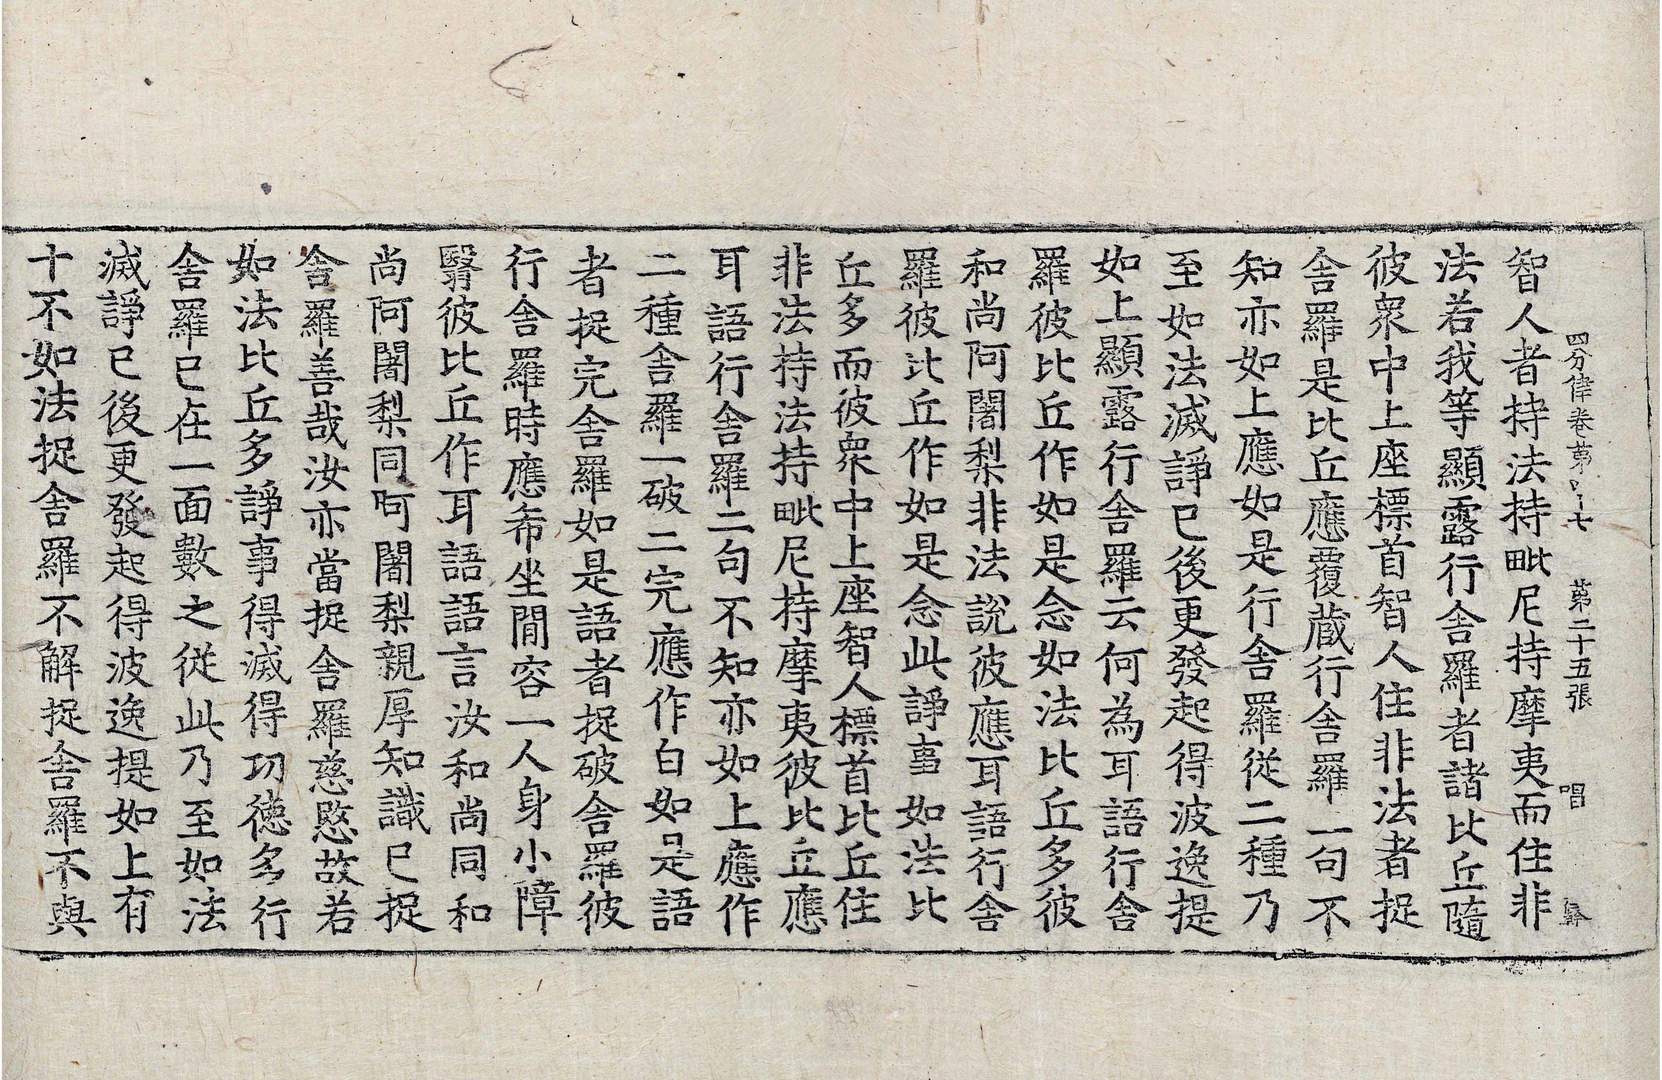 四分律卷第 七 第二十五張 唱
智人者持法持毗尼持摩夷而住非
法若我等顯露行舍羅者諸比丘隨
彼衆中上座標首智人住非法者捉
舍羅是比丘應覆藏行舍羅一句不
知亦如上應如是行舍羅從二種乃
至如法滅諍已後更發起得波逸提
如上顯露行舍羅云何為耳語行舍
羅彼比丘作如是念如法比丘多彼
和尚阿闍梨非法說彼應耳語行舍
羅彼比丘作如是念此諍事如法比
丘多而彼衆中上座智人標首比丘住
非法持法持毗尼持摩夷彼比丘應
耳語行舍羅二句不知亦如上應作
二種舍羅一破二完應作白如是語
者捉完舍羅如是語者捉破舍羅彼
行舍羅時應希坐間容一人身小障
翳彼比丘作耳語語言汝和尚同和
尚阿闍梨同阿闍梨親厚知識已捉
舍羅善哉汝亦當捉舍羅慈愍故若
如法比丘多諍事得滅得功德多行
舍羅已在一面數之從此乃至如法
滅諍已後更發起得波逸提如上有
十不如法捉舍羅不解捉舍羅不與